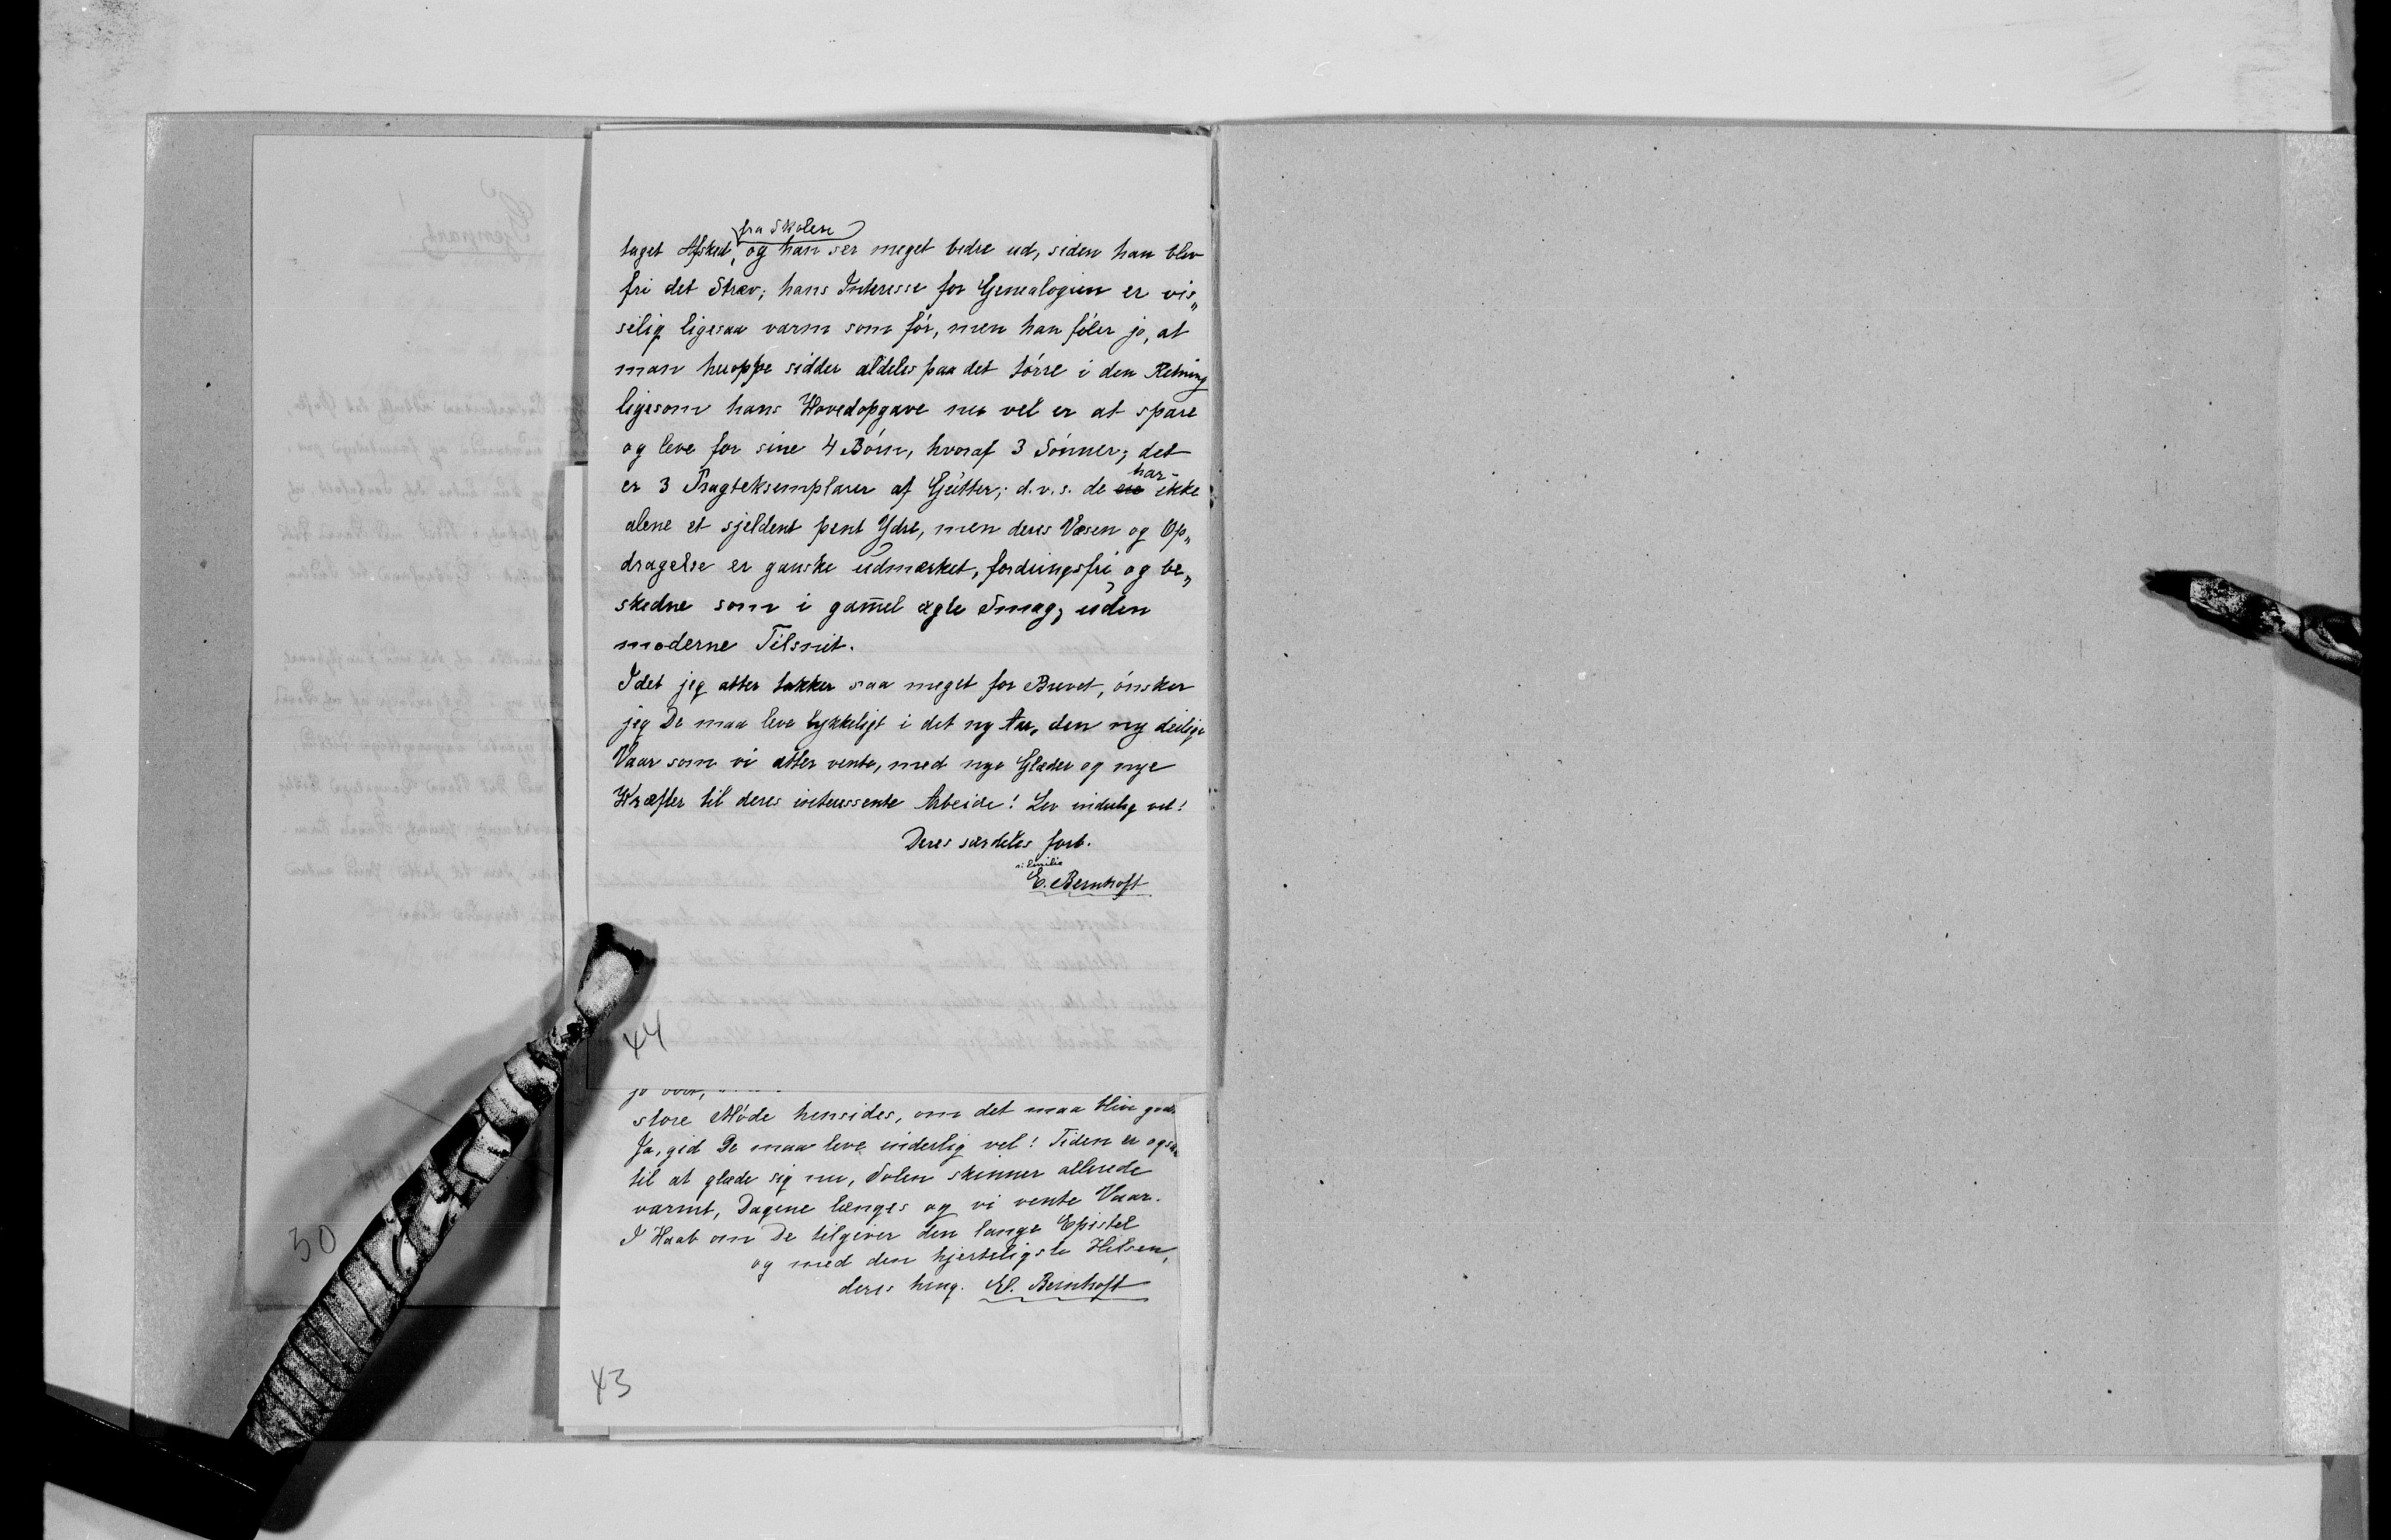 fra Skolen
taget Afsked, og han ser meget bedre ud, siden han blev
fri det Stræv; hans Interesse for Genealogien er vis„
selig ligesaa varm som før, men han føler jo, at
man heroppe sidder aldeles paa det tørre i den Retning
ligesom hans Hovedopgave nu vel er at spare
og leve for sine 4 Børn, hvoraf 3 Sønner; det
har
er 3 Pragteksemplarer af Gutter; d.v.s. de ere ikke
alene et sjeldent pent Ydre, men deres Væsen og Op„
dragelse er ganske udmærket, fordringsfri og be„
skedne som i gam̄el ægte Smag, uden
moderne Tilsnit.
Idet jeg atter takker saa meget for Brevet, ønsker
jeg De maa leve lykkeligt i det ny Aar, den ny deilige
Vaar som vi atter vente, med nye Glæder og nye
Kræfter til deres interessente Arbeide! Lev inderlig vel!
Deres særdeles forb.
Emilie
E. Bernhoft
44
store Møde hensides, om det maa blive godt.
Ja, gid De maa leve inderlig vel! Tiden er ogsaa
til at glæde sig nu, Solen skinner allerede
varmt, Dagene længes og vi vente Vaar.
I Haab om De tilgiver den lange Epistel
og med den hjerteligste Hilsen,
deres heng. E. Bernhoft
43
30